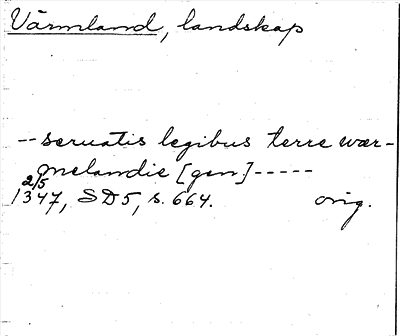 Värmland, landskap
-- seruatis legibus terre wær-
melandie [gen] -----
2/5
1347, SD5, s. 664. orig.